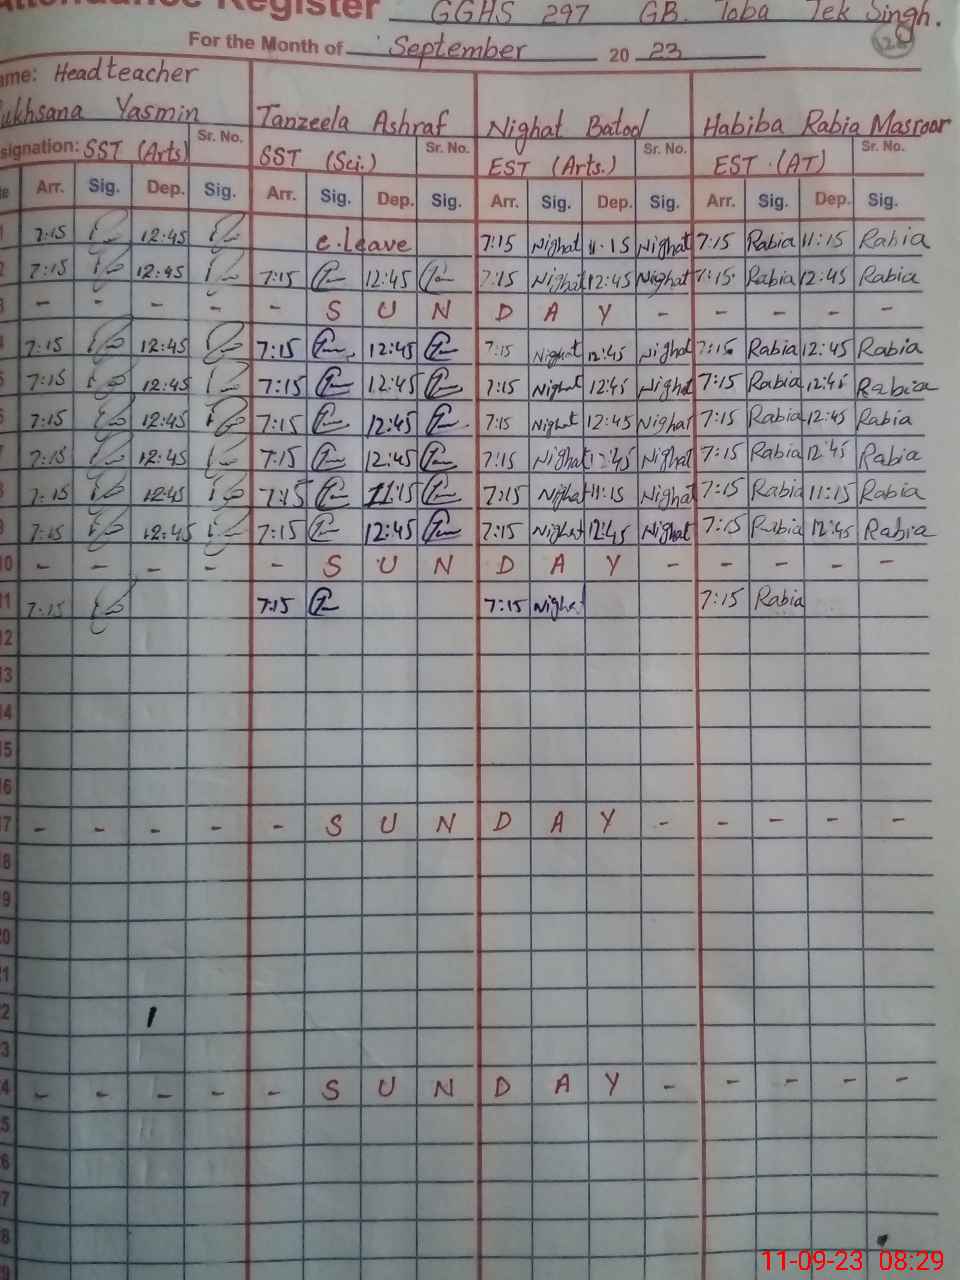 Attendance Register GGHS 297 GB. Toba Tek Singh.
For the Month of September 20 23
Name: Headteacher
Rukhsana Yasmin Tanzeela Ashraf Nighat Batool Habiba Rabia Masroor
Designation: SST (Arts) Sr. No. SST (Sci.) Sr. No. EST (Arts.) Sr. No. EST (AT) Sr. No.
Arr. Sig. Dep. Sig. Arr. Sig. Dep. Sig. Arr. Sig. Dep. Sig. Arr. Sig. Dep. Sig.
1 7:15 12:45 C.leave 7:15 Nighat 11:15 Nighat 7:15 Rabia 11:15 Rabia
2 7:15 12:45 7:15 12:45 7:15 Nighat 12:45 Nighat 7:15 Rabia 12:45 Rabia
3 - - - - - S U N D A Y - - - - -
4 7:15 12:45 7:15 12:45 7:15 Nighat 12:45 Nighat 7:15 Rabia 12:45 Rabia
5 7:15 12:45 7:15 12:45 7:15 Nighat 12:45 Nighat 7:15 Rabia 12:45 Rabia
6 7:15 12:45 7:15 12:45 7:15 Nighat 12:45 Nighat 7:15 Rabia 12:45 Rabia
7 7:15 12:45 7:15 12:45 7:15 Nighat 12:45 Nighat 7:15 Rabia 12:45 Rabia
8 7:15 12:45 7:15 11:15 7:15 Nighat 11:15 Nighat 7:15 Rabia 11:15 Rabia
9 7:15 12:45 7:15 12:45 7:15 Nighat 12:45 Nighat 7:15 Rabia 12:45 Rabia
10 - - - - - S U N D A Y - - - - -
11 7:15 7:15 7:15 Nighat 7:15 Rabia
12
13
14
15
16
17 - - - - - S U N D A Y - - - - -
18
19
20
21
22
23
24 - - - - - S U N D A Y - - - - -
25
26
27
28
29
11-09-23 08:29